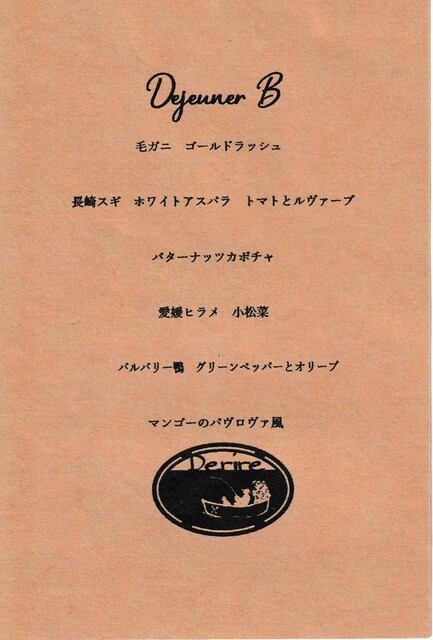 Dejeuner B
毛ガニ　ゴールドラッシュ
長崎スギ　ホワイトアスパラ　トマトとルヴァーブ
バターナッツカボチャ
愛媛ヒラメ　小松菜
バルバリー鴨　グリーンペッパーとオリーブ
マンゴーのパヴロヴァ風
Derire